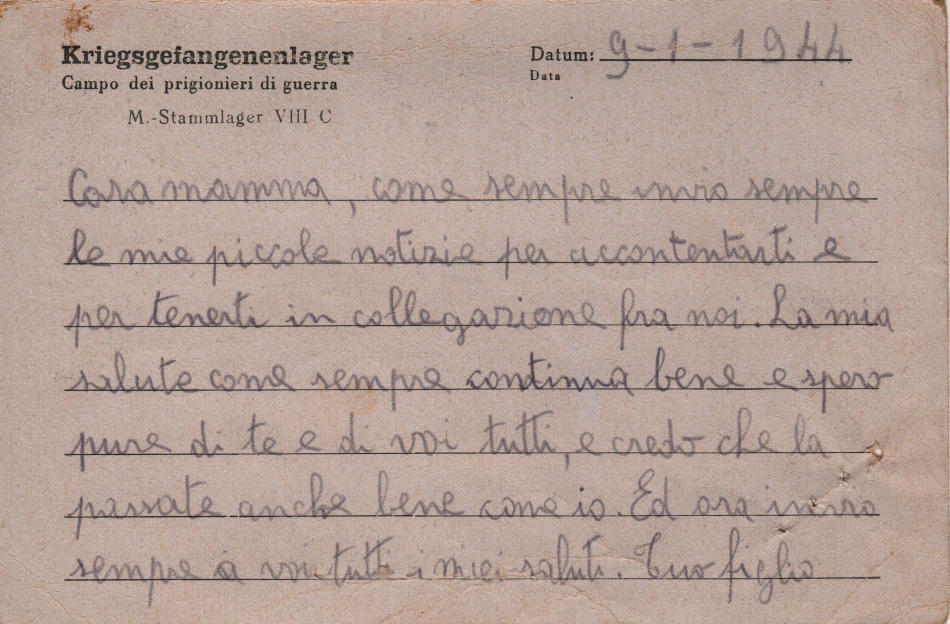 Kriegsgefangenenlager
Datum: 9-1-1944
Campo dei prigionieri di guerra
Data
M.-Stammlager VIII C
Cara mamma, come sempre invio sempre
le mie piccole notizie per accontentarti e
per tenerti in collegazione fra noi. La mia
salute come sempre continua bene e spero
pure di te e di voi tutti, e credo che la
passate anche bene come io. Ed ora invio
sempre a voi tutti i miei saluti. Tuo figlio